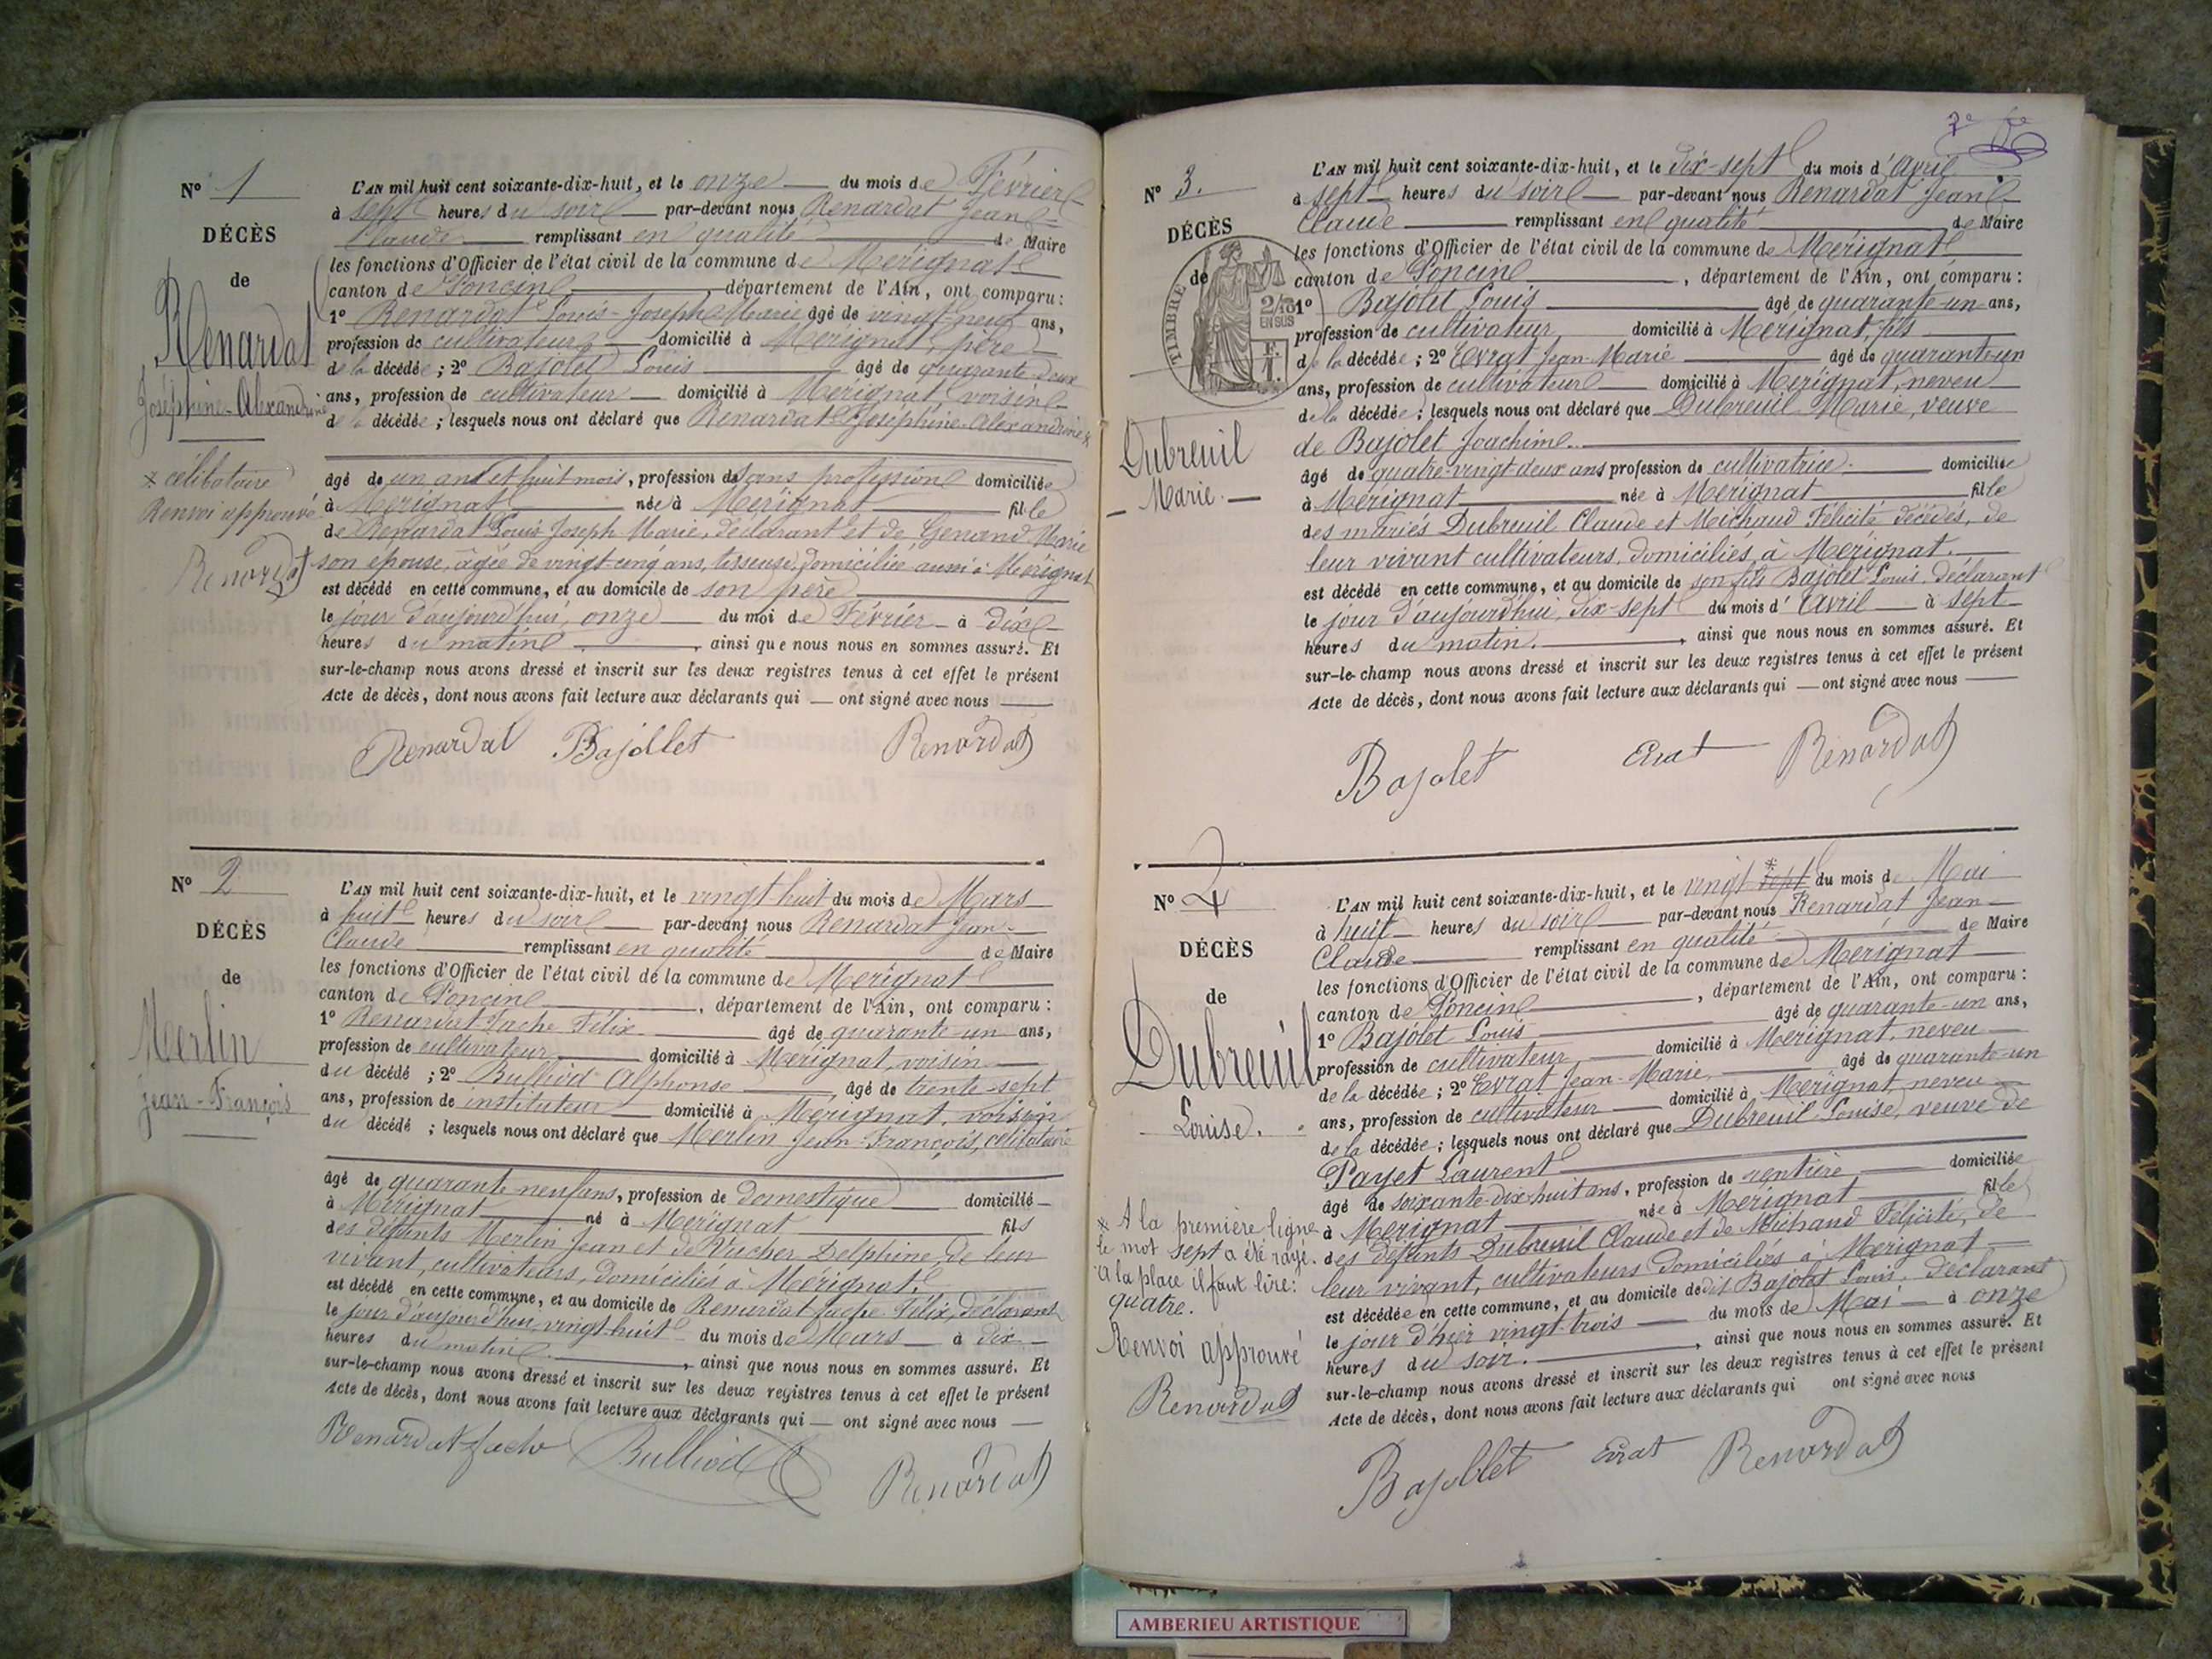 N° 1
DÉCÈS
de
Renardat
Joséphine-Alexandrine
* célibataire
Renvoi approuvé
Renardat
L'AN mil huit cent soixante-dix-huit, et le onze du mois de Février
à sept heures du soir par-devant nous Renardat Jean
Claude remplissant en qualité de Maire
les fonctions d'Officier de l'état civil de la commune de Mérignat
canton de Poncin, département de l'Ain, ont comparu:
1° Renardat Louis-Joseph Marie âgé de vingt-neuf ans,
profession de cultivateur domicilié à Mérignat, père
de la décédée; 2° Bajolet Louis âgé de quarante-deux
ans, profession de cultivateur domicilié à Mérignat, voisin
de la décédée; lesquels nous ont déclaré que Renardat Joséphine-Alexandrine *
âgé de un an et huit mois, profession de sans profession domiciliée
à Mérignat née à Mérignat fille
de Renardat Louis Joseph Marie, déclarant et de Genand Marie
son épouse, âgée de vingt-cinq ans, tisseuse, domiciliée aussi à Mérignat
est décédé en cette commune, et au domicile de son père
le jour d'aujourd'hui, onze du moi de Février à dix
heures du matin, ainsi que nous nous en sommes assuré. Et
sur-le-champ nous avons dressé et inscrit sur les deux registres tenus à cet effet le présent
Acte de décès, dont nous avons fait lecture aux déclarants qui — ont signé avec nous
Renardat Bajollet Renardat
N° 2
DÉCÈS
de
Merlin
jean-François
L'AN mil huit cent soixante-dix-huit, et le vingt-huit du mois de Mars
à huit heures du soir par-devant nous Renardat Jean-
Claude remplissant en qualité de Maire
les fonctions d'Officier de l'état civil de la commune de Mérignat
canton de Poncin, département de l'Ain, ont comparu:
1° Renardat-Fache Félix âgé de quarante-un ans,
profession de cultivateur domicilié à Mérignat, voisin
du décédé; 2° Bulliod Alphonse, âgé de trente-sept
ans, profession de instituteur domicilié à Mérignat, voisin
du décédé; lesquels nous ont déclaré que Merlin Jean-François, célibataire
âgé de quarante-neuf ans, profession de domestique domicilié
à Mérignat né à Mérignat fils
des défunts Merlin Jean et de Vucher Delphine, de leur
vivant, cultivateurs, domiciliés à Mérignat.
est décédé en cette commune, et au domicile de Renardat-fache Félix, déclarant
le jour d'aujourd'hui, vingt-huit du mois de Mars à dix
heures du matin, ainsi que nous nous en sommes assuré. Et
sur-le-champ nous avons dressé et inscrit sur les deux registres tenus à cet effet le présent
Acte de décès, dont nous avons fait lecture aux déclarants qui — ont signé avec nous —
Renardat-fache Bulliod Renardat
N° 3.
DÉCÈS
de
TIMBRE
2/10
EN SUS
Dubreuil
Marie.
L'AN mil huit cent soixante-dix-huit, et le dix-sept du mois d'Avril
à sept heures du soir par-devant nous Renardat Jean-
Claude remplissant en qualité de Maire
les fonctions d'Officier de l'état civil de la commune de Mérignat
canton de Poncin, département de l'Ain, ont comparu:
1° Bajolet Louis âgé de quarante-un ans,
profession de cultivateur domicilié à Mérignat, fils
de la décédée; 2° Evrat Jean-Marie âgé de quarante-un
ans, profession de cultivateur domicilié à Mérignat, neveu
de la décédée; lesquels nous ont déclaré que Dubreuil Marie, veuve
de Bajolet Joachim.
âgé de quatre-vingt-deux ans profession de cultivatrice. domiciliée
à Mérignat née à Mérignat fille
des mariés Dubreuil Claude et Michaud Félicité décédés, de
leur vivant cultivateurs, domiciliés à Mérignat.
est décédé en cette commune, et au domicile de son fils Bajolet Louis, déclarant
le jour d'aujourd'hui, dix-sept du mois d'Avril à sept
heures du matin., ainsi que nous nous en sommes assuré. Et
sur-le-champ nous avons dressé et inscrit sur les deux registres tenus à cet effet le présent
Acte de décès, dont nous avons fait lecture aux déclarants qui — ont signé avec nous —
Bajolet Evrat Renardat
N° 4
DÉCÈS
de
Dubreuil
Louise.
* A la première ligne
le mot sept a été rayé.
A la place il faut lire:
quatre.
Renvoi approuvé
Renardat
L'AN mil huit cent soixante-dix-huit, et le vingt * sept du mois de Mai
à huit heures du soir par-devant nous Renardat Jean-
Claude remplissant en qualité de Maire
les fonctions d'Officier de l'état civil de la commune de Mérignat
canton de Poncin, département de l'Ain, ont comparu:
1° Bajolet Louis âgé de quarante-un ans,
profession de cultivateur domicilié à Mérignat, neveu
de la décédée; 2° Evrat Jean-Marie, âgé de quarante-un
ans, profession de cultivateur domicilié à Mérignat, neveu
de la décédée; lesquels nous ont déclaré que Dubreuil Louise, veuve de
Payet Laurent
âgé de soixante-dix-huit ans, profession de rentière domiciliée
à Mérignat née à Mérignat fille
des défunts Dubreuil Claude et de Michaud Félicité, de
leur vivant, cultivateurs domiciliés à Mérignat
est décédée en cette commune, et au domicile de dit Bajolet Louis, déclarant
le jour d'hier vingt-trois du mois de Mai à onze
heures du soir., ainsi que nous nous en sommes assuré. Et
sur-le-champ nous avons dressé et inscrit sur les deux registres tenus à cet effet le présent
Acte de décès, dont nous avons fait lecture aux déclarants qui ont signé avec nous
Bajollet Evrat Renardat
AMBERIEU ARTISTIQUE